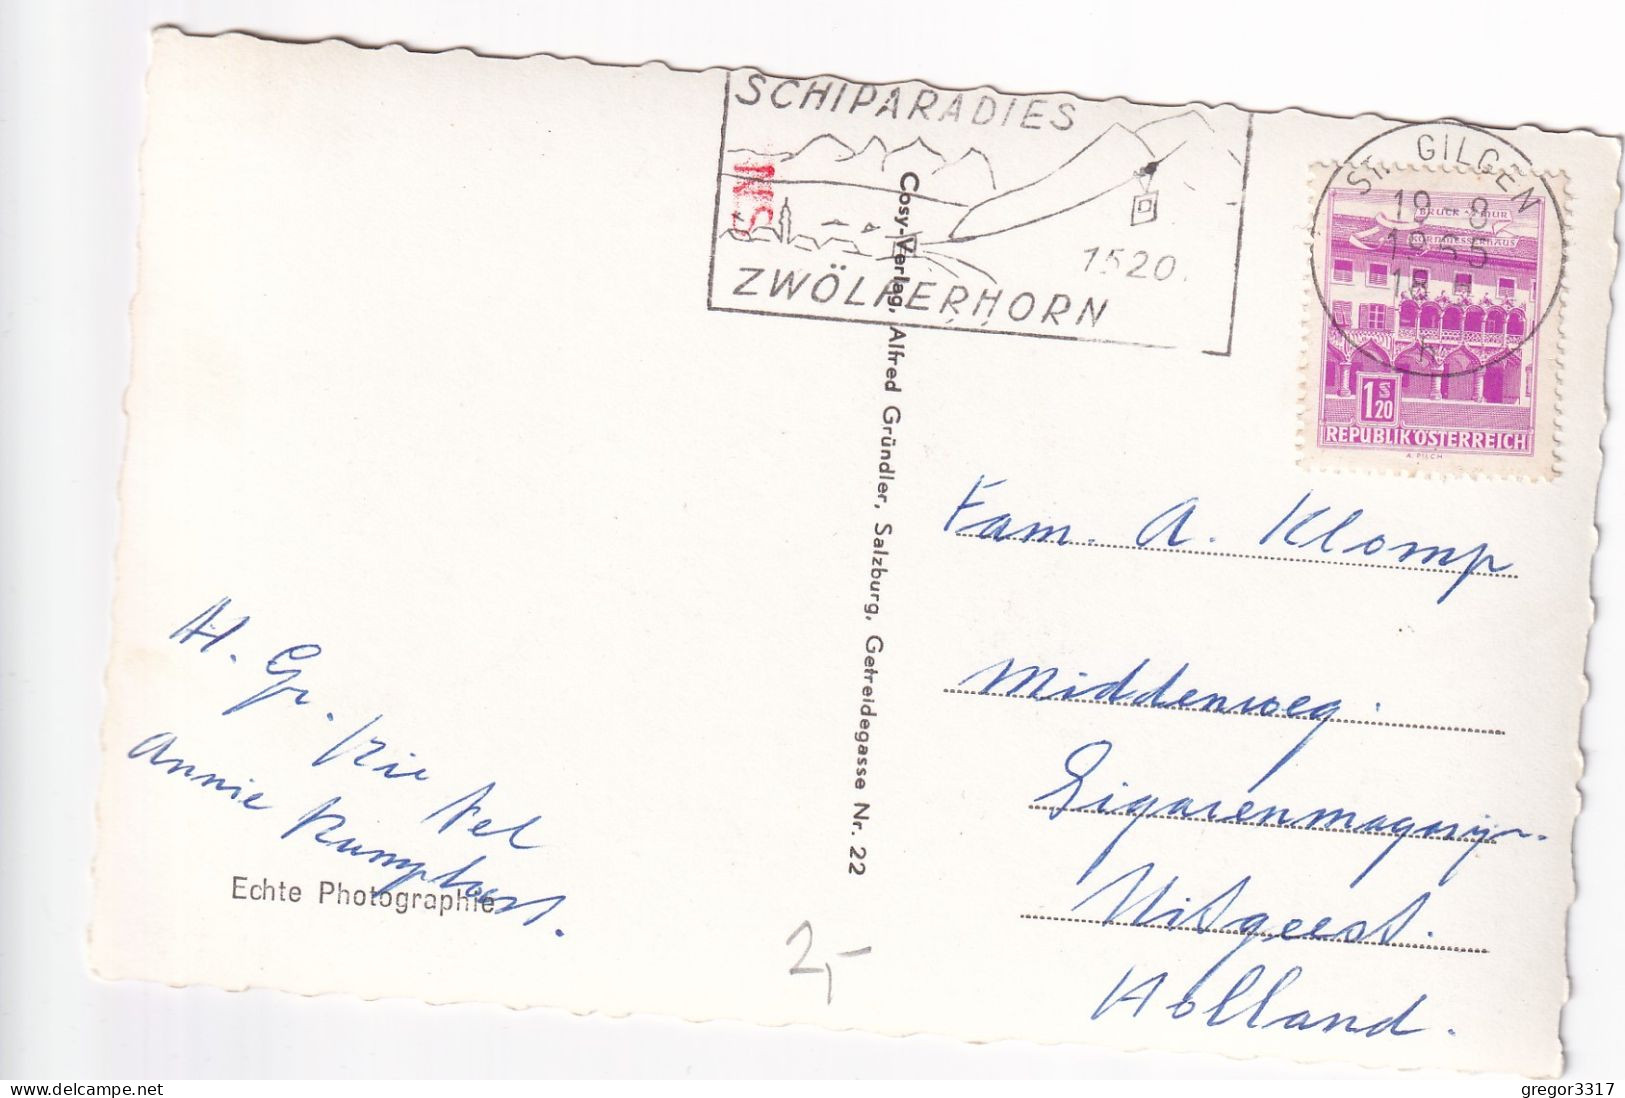 SCHIPARADIES
1520
ZWÖLFERHORN
NS
ST. GILGEN
19-8
1965
18
BRUCK A. MUR
KORNMESSERHAUS
1 S 20
REPUBLIK ÖSTERREICH
A. PILCH
Cosy-Verlag, Alfred Gründler, Salzburg, Getreidegasse Nr. 22
Fam. A. Klomp
Middenweg.
Sigarenmagazijn.
Uitgeest.
Holland.
H. Gr.
Annie
Echte Photographie
2,-
gregor3317